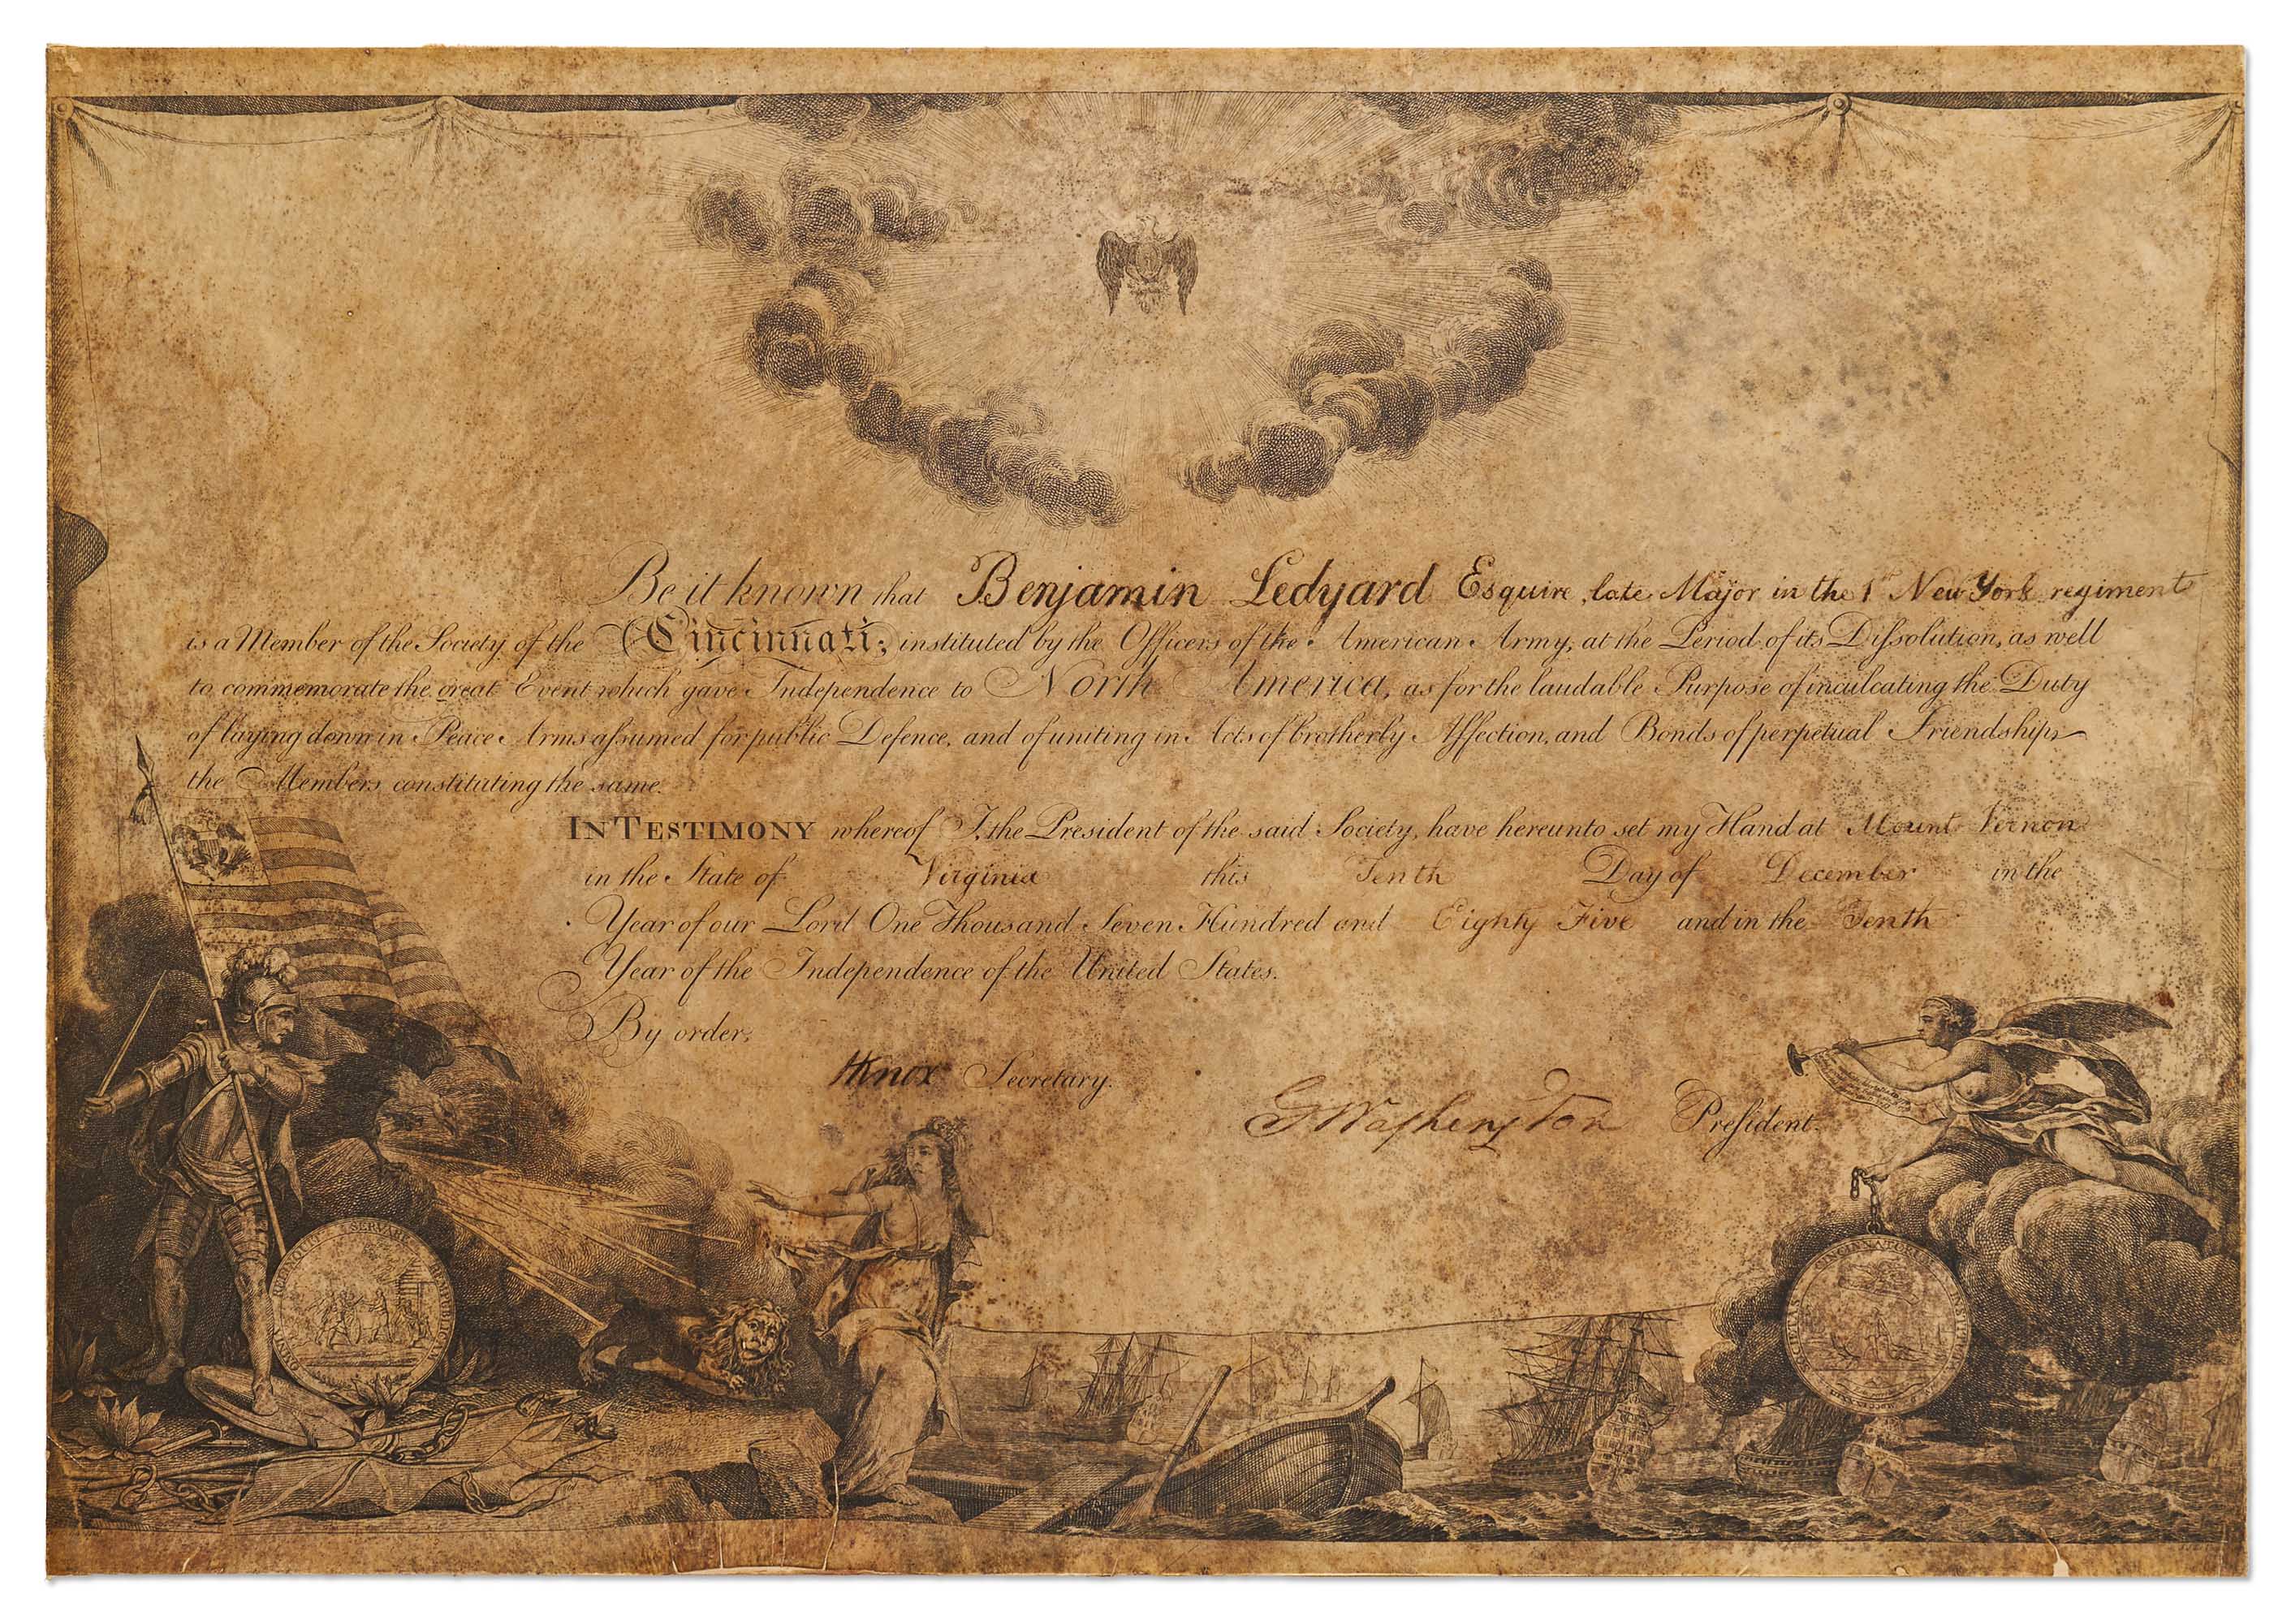 Be it known that Benjamin Ledyard Esquire, late Major in the 1st New York regiment
is a Member of the Society of the Cincinnati; instituted by the Officers of the American Army, at the Period of its Dissolution, as well
to commemorate the great Event which gave Independence to North America, as for the laudable Purpose of inculcating the Duty
of laying down in Peace Arms assumed for public Defence, and of uniting in Acts of brotherly Affection, and Bonds of perpetual Friendship
the Members constituting the same.
IN TESTIMONY whereof I, the President of the said Society, have hereunto set my Hand at Mount Vernon
in the State of Virginia this Tenth Day of December in the
Year of our Lord One Thousand Seven Hundred and Eighty Five and in the Tenth
Year of the Independence of the United States.
By order,
HKnox Secretary.
GWashington President.
OMNIA RELINQUIT SERVARE REMPUBLICAM